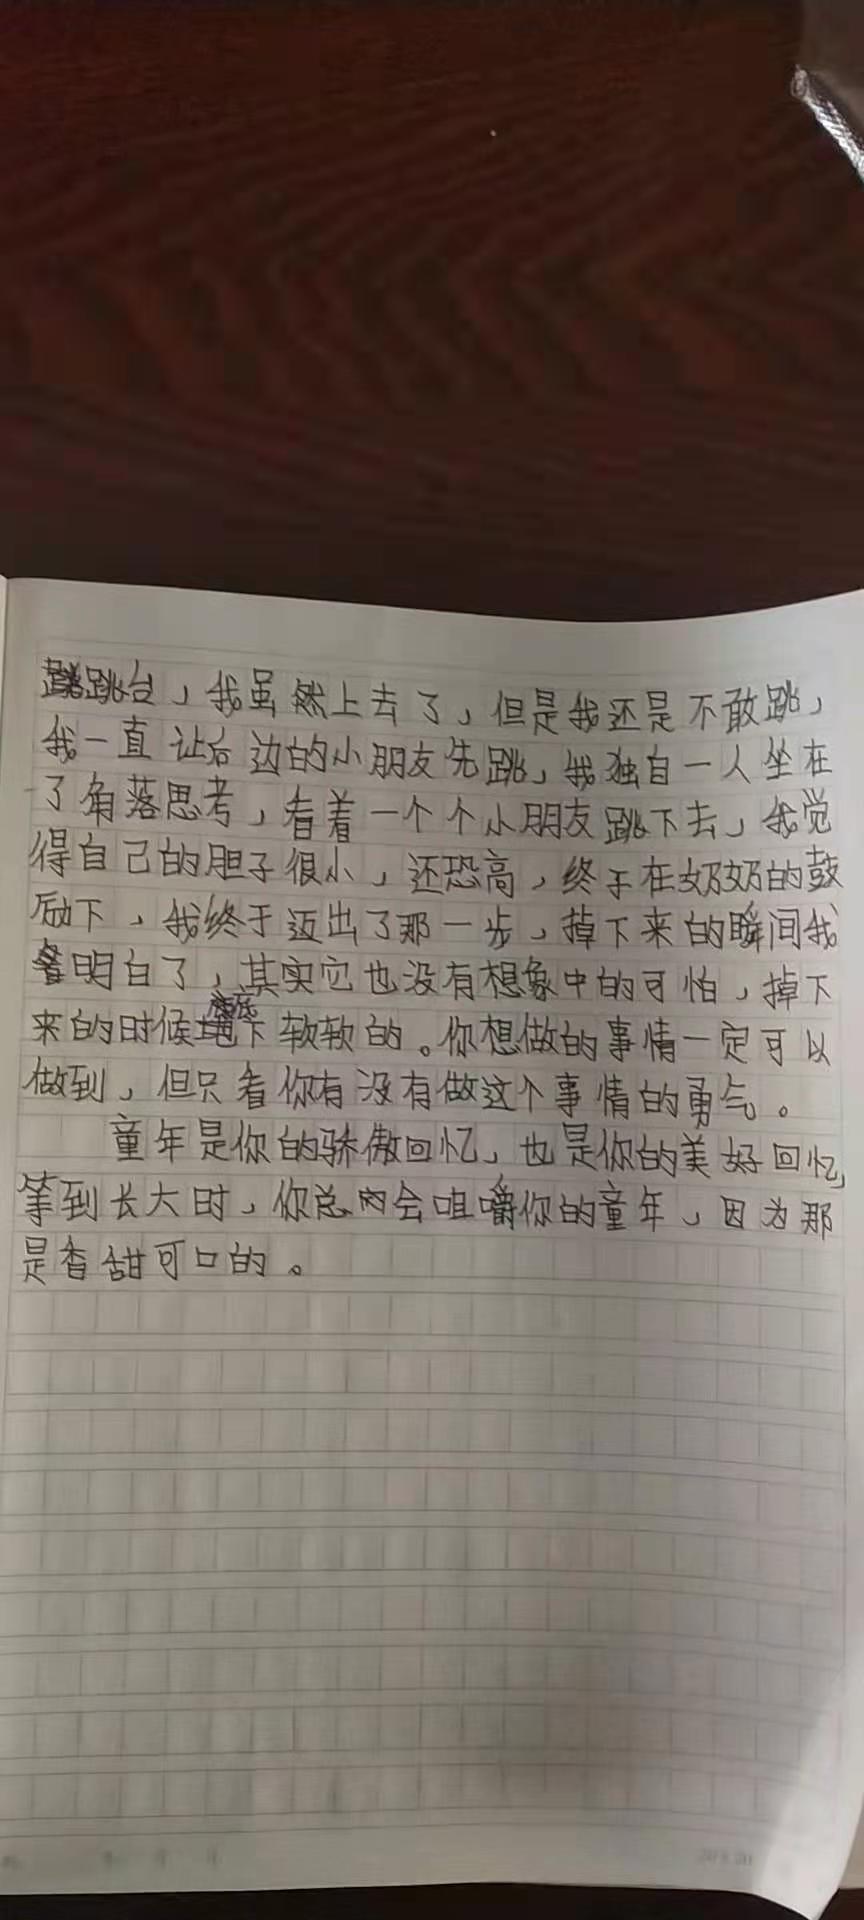 跳跳台，我虽然上去了，但是我还是不敢跳，
我一直让后边的小朋友先跳，我独自一人坐在
了角落思考，看着一个个小朋友跳下去，我觉
得自己的胆子很小，还恐高，终于在奶奶的鼓
励下，我终于迈出了那一步，掉下来的瞬间我
明白了，其实它也没有想象中的可怕，掉下
来的时候底下软软的。你想做的事情一定可以
做到，但只看你有没有做这个事情的勇气。
童年是你的骄傲回忆，也是你的美好回忆，
等到长大时，你总会咀嚼你的童年，因为那
是香甜可口的。